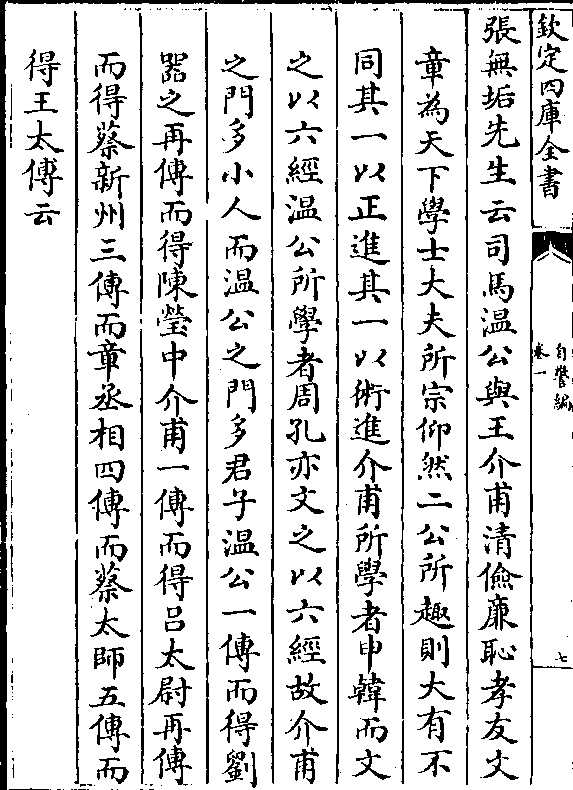 欽定四庫全書
自警編
卷一
七
張無垢先生云司馬溫公與王介甫清儉廉恥孝友文
章為天下學士大夫所宗仰然二公所趣則大有不
同其一以正進其一以術進介甫所學者申韓而文
之以六經溫公所學者周孔亦文之以六經故介甫
之門多小人而溫公之門多君子溫公一傳而得劉
器之再傳而得陳瑩中介甫一傳而得呂太尉再傳
而得蔡新州三傳而章丞相四傳而蔡太師五傳而
得王太傅云